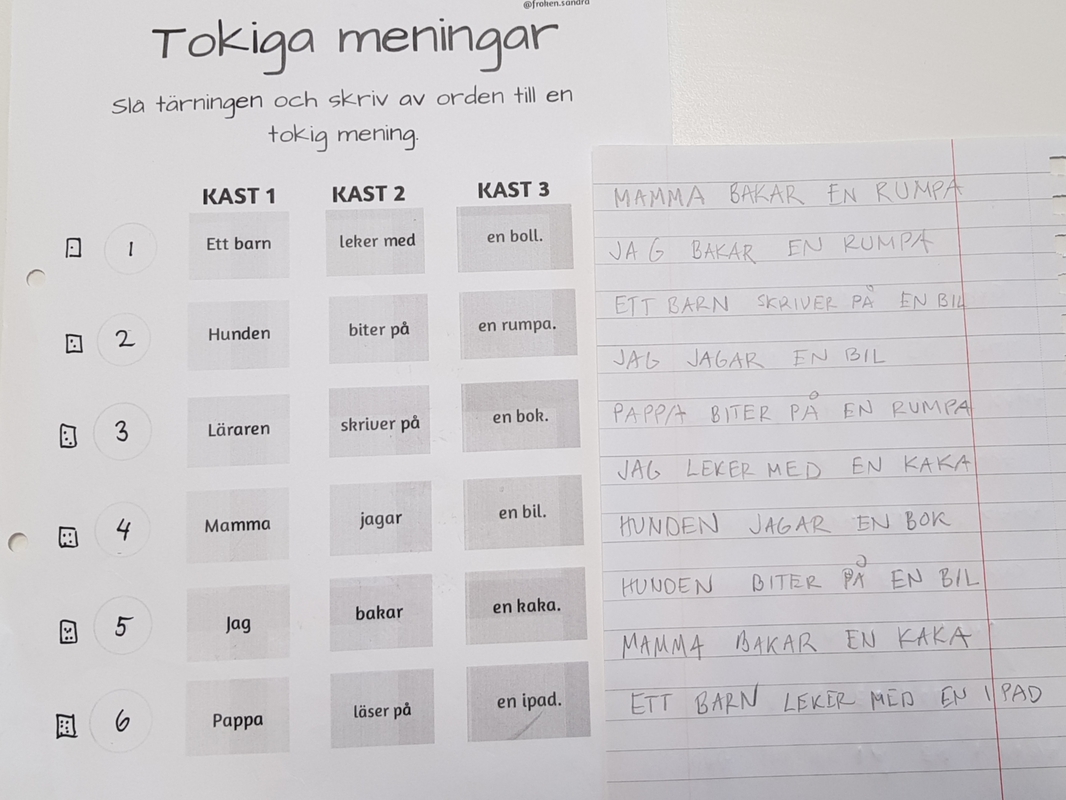 @froken.sandra
Tokiga meningar
Slå tärningen och skriv av orden till en
tokig mening.
KAST 1 KAST 2 KAST 3
1 Ett barn leker med en boll.
2 Hunden biter på en rumpa.
3 Läraren skriver på en bok.
4 Mamma jagar en bil.
5 Jag bakar en kaka.
6 Pappa läser på en ipad.
MAMMA BAKAR EN RUMPA
JAG BAKAR EN RUMPA
ETT BARN SKRIVER PÅ EN BIL
JAG JAGAR EN BIL
PAPPA BITER PÅ EN RUMPA
JAG LEKER MED EN KAKA
HUNDEN JAGAR EN BOK
HUNDEN BITER PÅ EN BIL
MAMMA BAKAR EN KAKA
ETT BARN LEKER MED EN IPAD